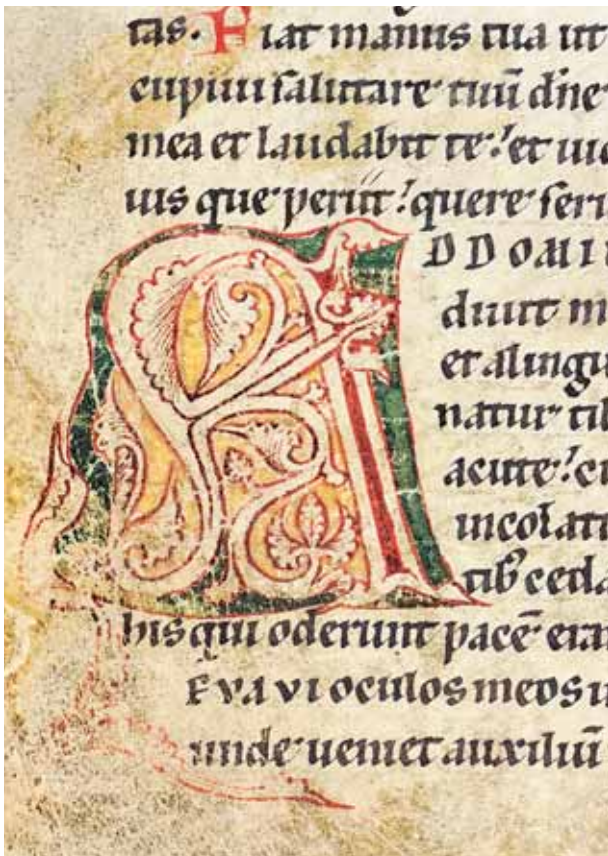 tas. Fiat manus tua ut
cupiui salutare tuū dn̄e
mea et laudabit te: et
uis que periit: quere
AD DOMI
diuit m
et a lingu
natur
acute:
incolat
tib; ceda
his qui oderunt pacē era
EVAVI oculos meos
unde ueniet auxiliū